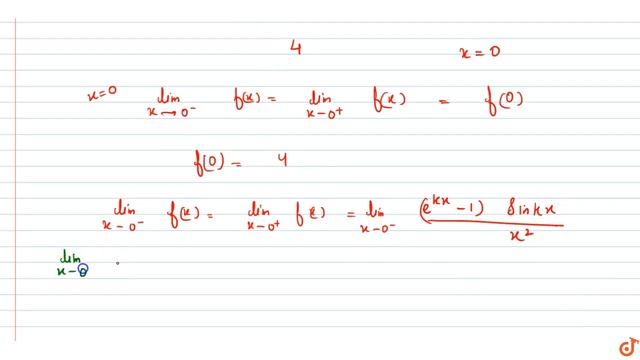 4 x = 0
x=0 lim x→0⁻ f(x) = lim x-0⁺ f(x) = f(0)
f(0) = 4
lim x-0⁻ f(x) = lim x-0⁺ f(x) = lim x-0⁻ (e^kx - 1) sin kx / x²
lim x-0